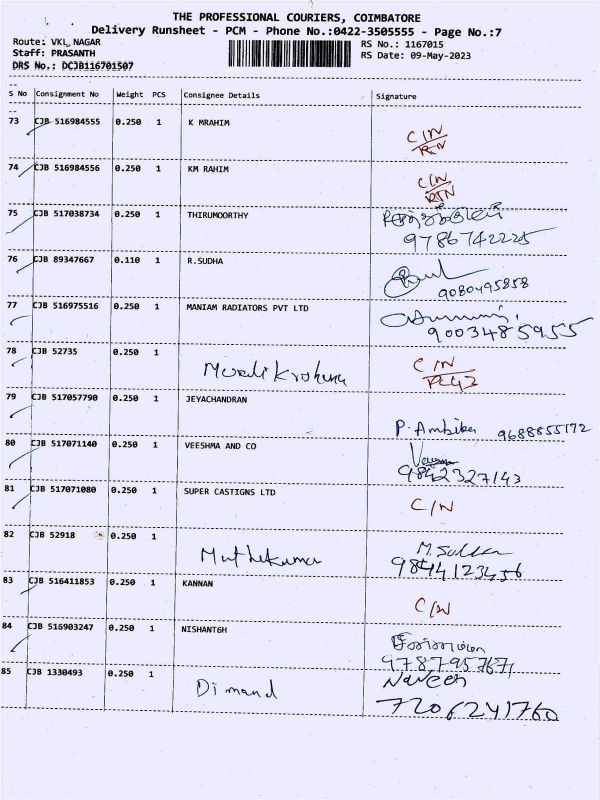 THE PROFESSIONAL COURIERS, COIMBATORE
Delivery Runsheet - PCM - Phone No.:0422-3505555 - Page No.:7
Route: VKL NAGAR
RS No.: 1167015
Staff: PRASANTH
RS Date: 09-May-2023
DRS No.: DCJB116701507
S No Consignment No Weight PCS Consignee Details Signature
73 CJB 516984555 0.250 1 K MRAHIM C/N
RTN
74 CJB 516984556 0.250 1 KM RAHIM C/N
RTN
75 CJB 517038734 0.250 1 THIRUMOORTHY
9786742225
76 CJB 89347667 0.110 1 R.SUDHA
9080495858
77 CJB 516975516 0.250 1 MANIAM RADIATORS PVT LTD
9003485955
78 CJB 52735 0.250 1 Murali Krishna C/N
79 CJB 517057790 0.250 1 JEYACHANDRAN
P. Ambika 9688855172
80 CJB 517071140 0.250 1 VEESHMA AND CO
9842327143
81 CJB 517071080 0.250 1 SUPER CASTIGNS LTD C/N
82 CJB 52918 0.250 1 Muthukumar
9844123456
83 CJB 516411853 0.250 1 KANNAN C/N
84 CJB 516903247 0.250 1 NISHANT6H
9787957671
85 CJB 1330493 0.250 1 Dimand Naveen
7206241760